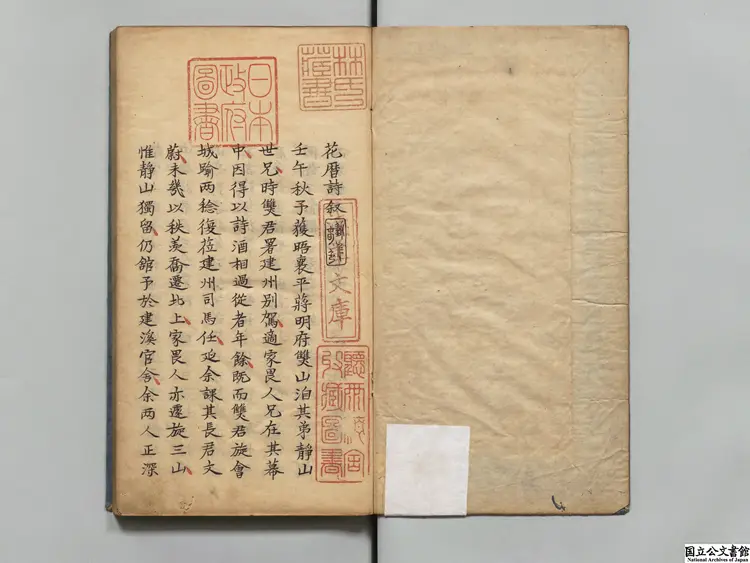 花曆詩叙
壬午秋予獲晤襄平蔣明府雙山泊其弟静山
世兄時雙君署建州别駕適家畏人兄在其幕
中因得以詩酒相過從者年餘既而雙君旋會
城踰兩稔復莅建州司馬任延余課其長君文
蔚未㡬以秩羙喬遷北上家畏人亦還旋三山
惟静山獨留仍舘予於建溪官舎余两人正深
林氏藏書
日本政府圖書
文庫
圖書
国立公文書館
National Archives of Japan